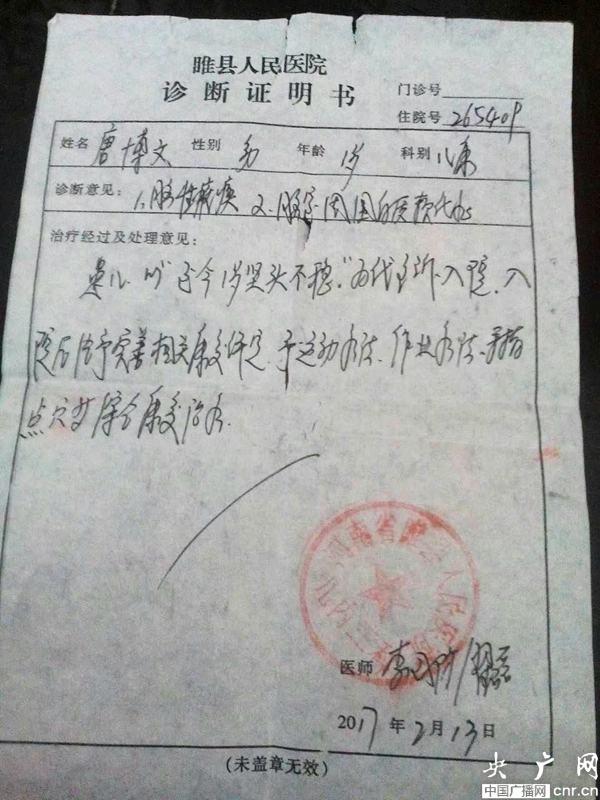 睢县人民医院
诊断证明书
门诊号
住院号 265409
姓名 唐博文 性别 男 年龄 1岁 科别 儿康
诊断意见： 1.脑性瘫痪 2.脑室周围白质软化
治疗经过及处理意见：
患儿以"至今1岁竖头不稳"为代主诉入院，入
院后给予完善相关康复评定，予运动疗法、作业疗法、
点穴等综合康复治疗
河南省睢县人民医院
医师 李
2017年2月13日
(未盖章无效)
央广网
中国广播网 cnr.cn